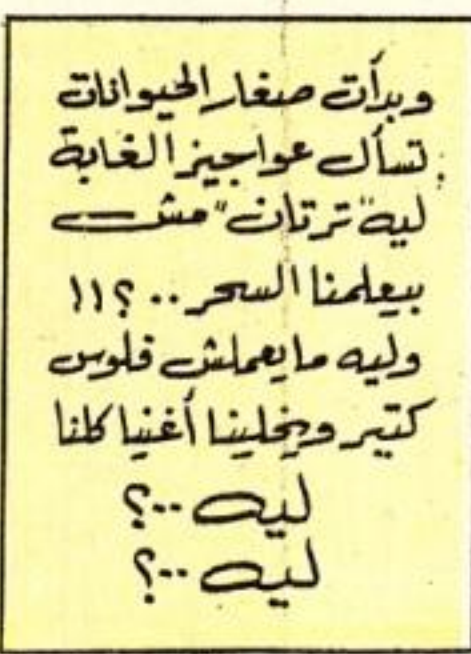 وبدأت صغار الحيوانات
تسأل عواجيز الغابة
ليه "ترتان" مش
بيعلمنا السحر .. ؟!!
وليه مايعملش فلوس
كتير ويخلينا أغنيا كلنا
ليه ..؟
ليه ..؟